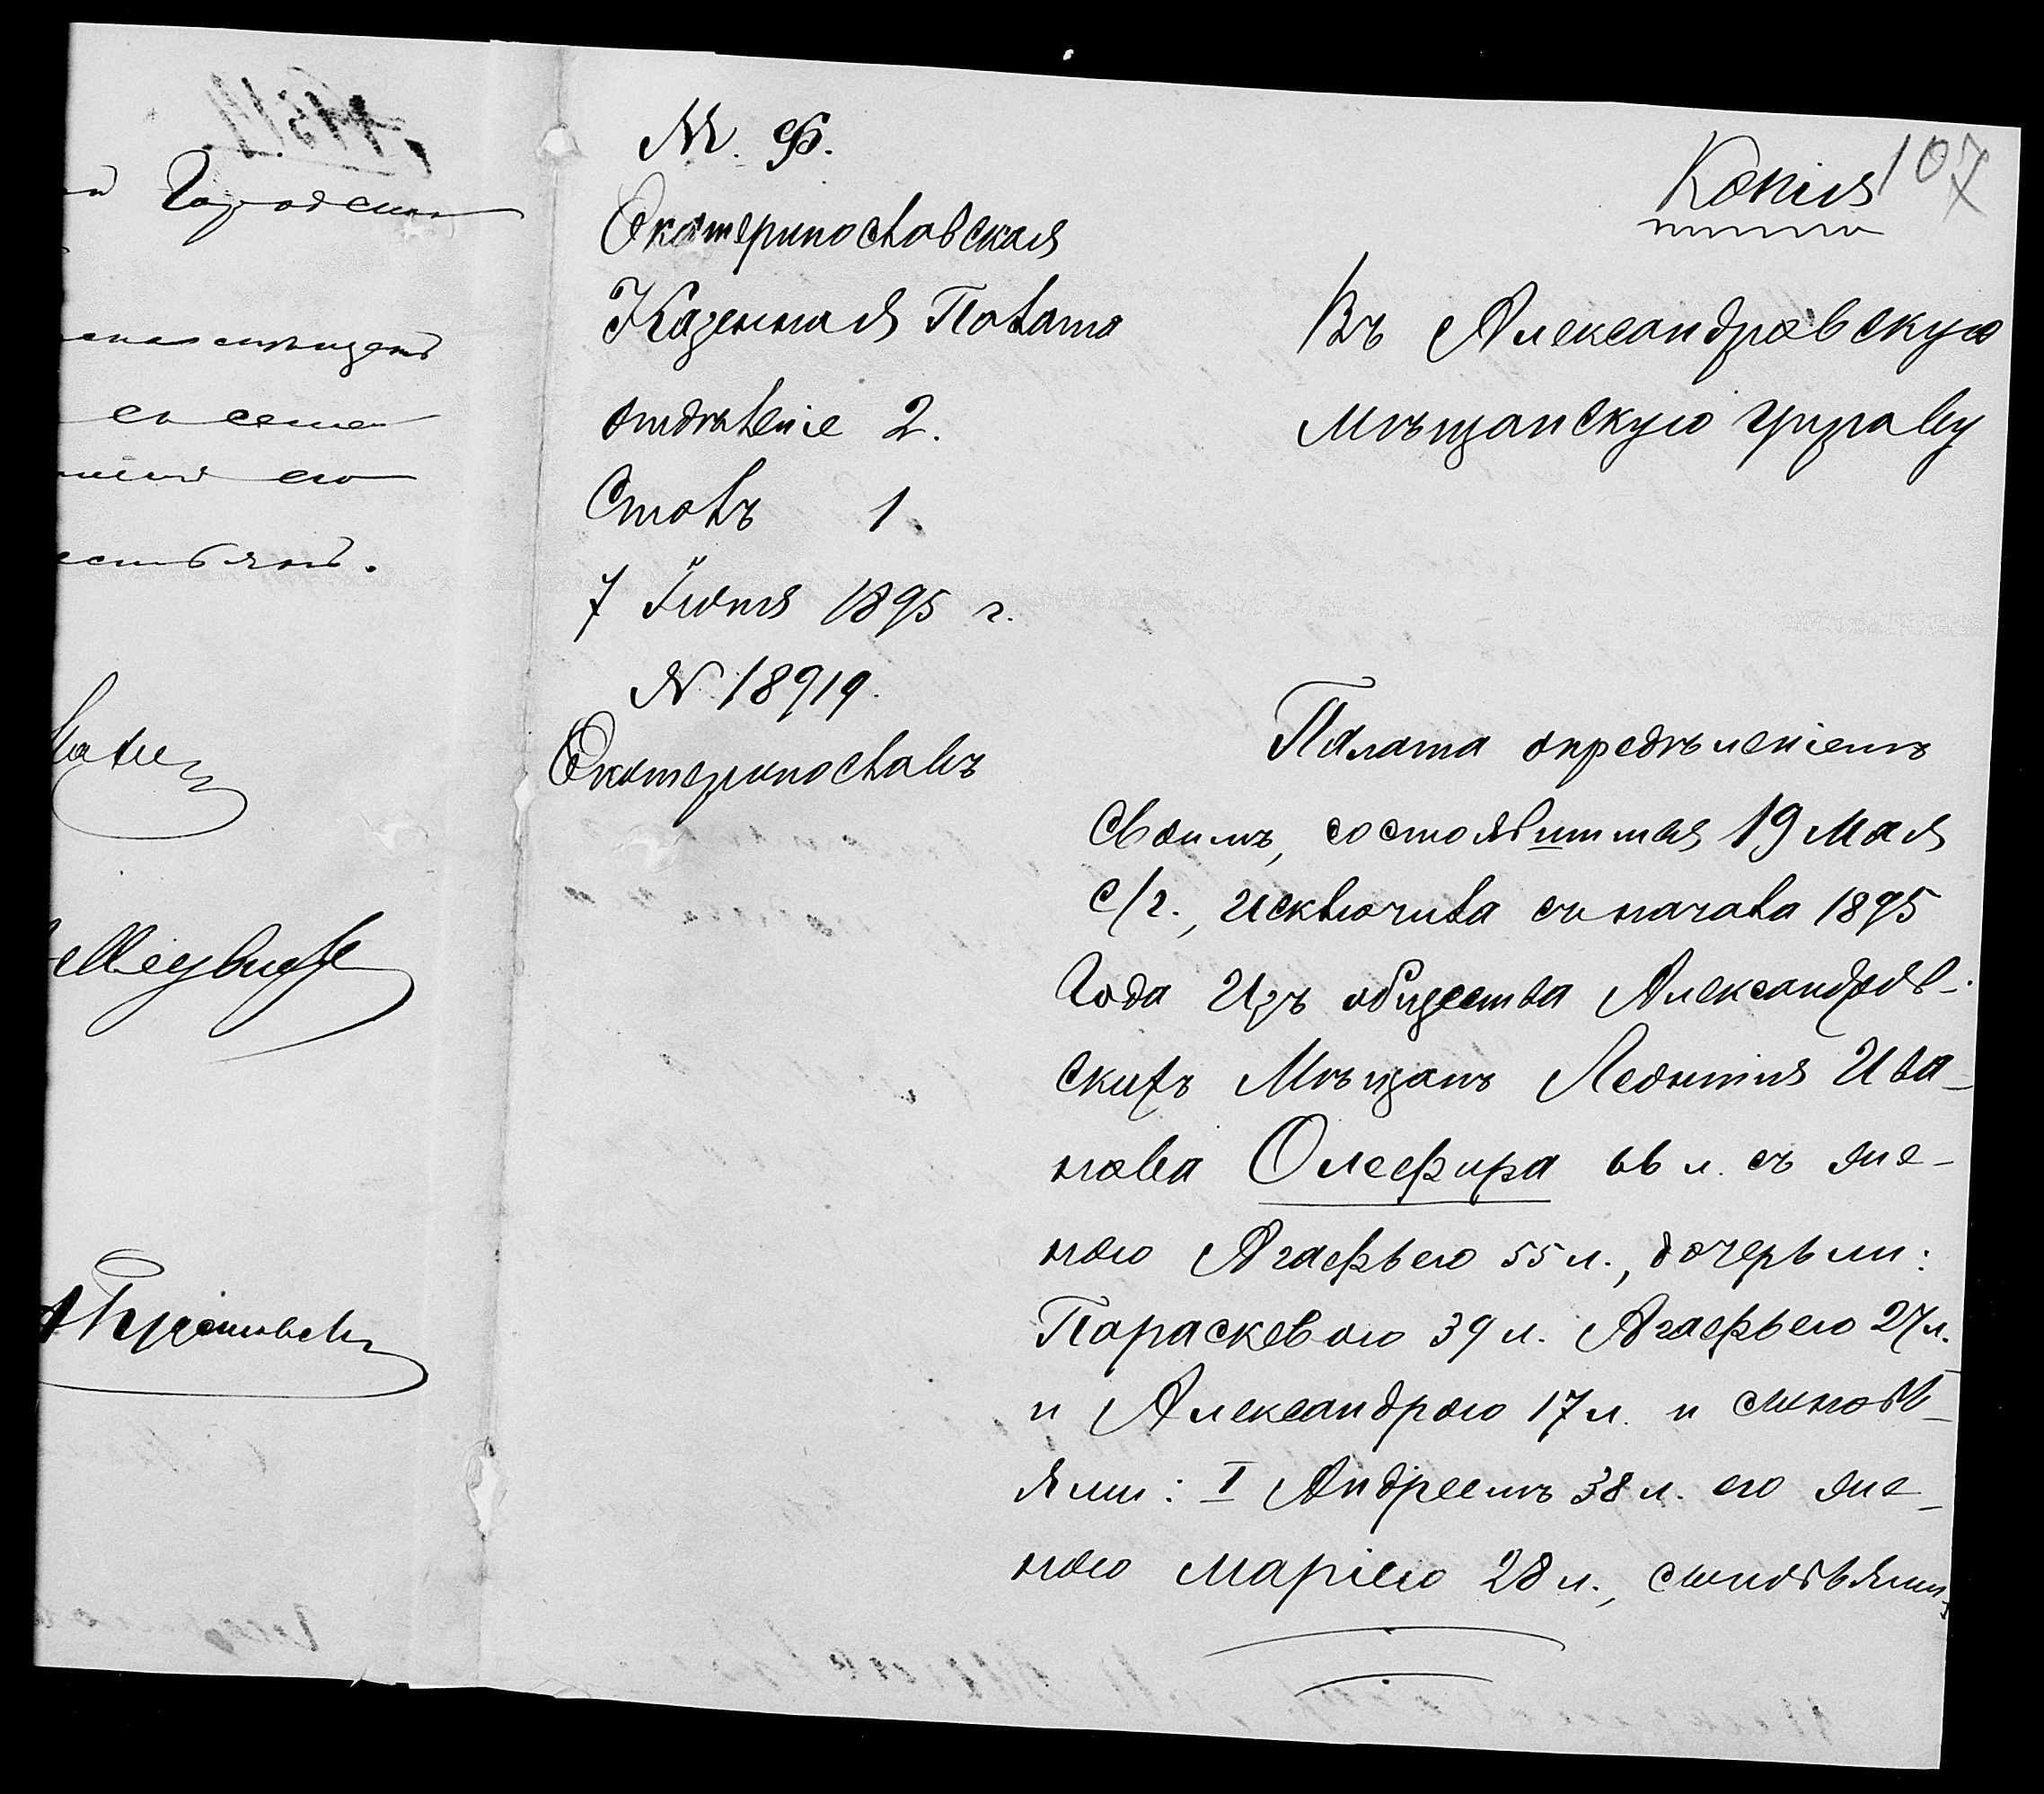 Городской
его
М. Ф.
Екатеринославская
Казенная Палата
отдѣленіе 2.
Столъ 1.
7 Іюня 1895 г.
№ 18919.
Екатеринославъ
Копия
107
Въ Александровскую
Мѣщанскую Управу
Палата опредѣленіемъ
своимъ, состоявшимся 19 Мая
с/г., исключила съ начала 1895
года изъ общества Александров-
скихъ Мѣщанъ Леонтия Ива-
нова Олефира 66 л. съ же-
ною Агафьею 55 л., дочерьми:
Параскевою 39 л. Агафьею 27 л.
и Александрою 17 л. и сыновь-
ями: I Андреемъ 38 л. его же-
ною Маріею 28 л., сыновьями